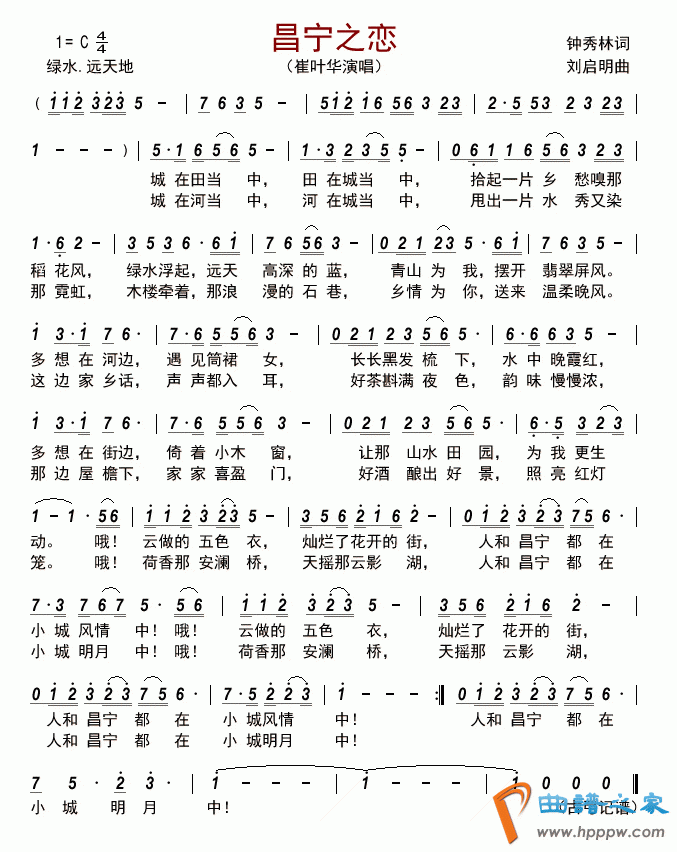 昌宁之恋
1=C 4/4
钟秀林词
绿水.远天地
（崔叶华演唱）
刘启明曲
( 112 323 5 - | 7 6 3 5 - | 512 16 56 5 - | 2·5 53 2 - |
1 - - ) | 5·1 66 5 - | 3·3 23 5 - | 061 16 56 3 2·3 |
城 在田当 中， 田 在城当 中， 拾起一片 乡 愁嗅那
城 在河当 中， 河 在城当 中， 甩出一片 水 秀又染
1·6 2 - | 3 5 3 6·6 1 | 7 6 56 3 - | 021 21 23 5·6 1 | 6536 5 - |
稻 花风， 绿水浮起，远天 高深的蓝， 青山 为 我，摆开 翡翠屏风。
那 霓虹， 木楼牵着，那浪 漫的石巷， 乡情 为 你，送来 温柔晚风。
1 3·1 7 6· | 6 5 56 3 - | 021 23 5 6· | 06 6 2 2 3 - |
多 想 在 河边， 遇 见筒裙 女， 长长黑发 梳 下， 水 中 晚霞红，
这 边 家 乡话， 声 声都入 耳， 好茶斟满 夜 色， 韵 味 慢慢浓，
1 3·1 7 6· | 6 5 56 3 - | 021 23 5 2· | 02 2 6·5 |
多 想 在 街边， 倚 着小木 窗， 让那 山水 田 园， 为 我 更生
那 边 屋 檐下， 家 家喜盈 门， 好酒 酿出 好 景， 照 亮 红灯
1 - 1· 56 | 112 3 23 5 | 356 2167 6· | 012 323 75 6 |
动。 哦！ 云做的 五色 衣， 灿烂了花开的 街， 人和 昌宁 都 在
笼。 哦！ 荷香那 安澜 桥， 天摇那云影 湖， 人和 昌宁 都 在
7·3 767 5· 56 | 112 3 23 5· | 356 2 16 2· |
小 城 风情 中！哦！ 云做的 五色 衣， 灿烂了 花开的 街，
小 城 明月 中！哦！ 荷香那 安澜 桥， 天摇那 云影 湖，
012 323 75 6· | 7·5 2 23 1 - | 1 - - - :| 012 323 75 6· |
人和 昌宁 都 在 小 城风情 中！ 人和 昌宁 都 在
人和 昌宁 都 在 小 城明月 中！
7 5· 2· 3 | 1 - - - | 1 - - - | 1 0 0 0 ‖
小 城 明 月 中！
曲谱之家
www.hpppw.com